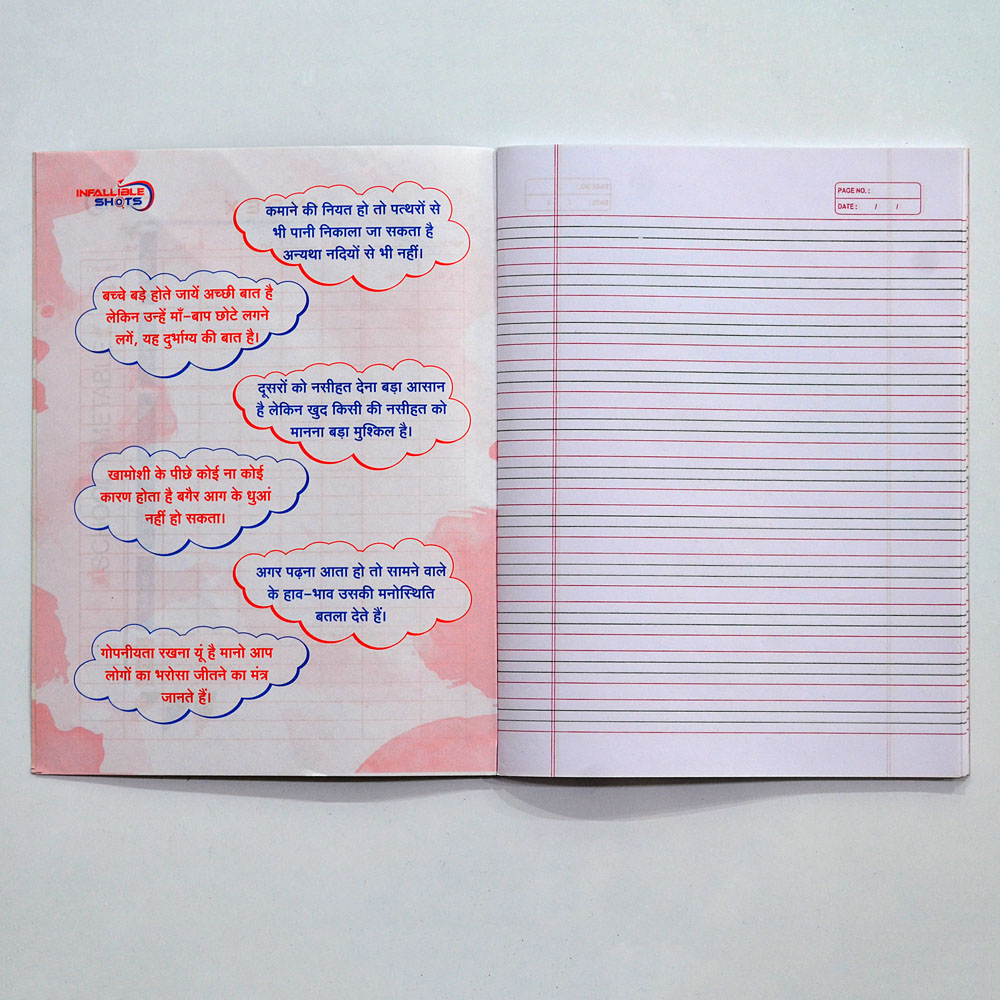 INFALLIBLE
SHOTS
कमाने की नियत हो तो पत्थरों से
भी पानी निकाला जा सकता है
अन्यथा नदियों से भी नहीं।
बच्चे बड़े होते जायें अच्छी बात है
लेकिन उन्हें माँ-बाप छोटे लगने
लगें, यह दुर्भाग्य की बात है।
दूसरों को नसीहत देना बड़ा आसान
है लेकिन खुद किसी की नसीहत को
मानना बड़ा मुश्किल है।
खामोशी के पीछे कोई ना कोई
कारण होता है बगैर आग के धुआं
नहीं हो सकता।
अगर पढ़ना आता हो तो सामने वाले
के हाव-भाव उसकी मनोस्थिति
बतला देते हैं।
गोपनीयता रखना यूं है मानो आप
लोगों का भरोसा जीतने का मंत्र
जानते हैं।
PAGE NO. :
DATE : / /